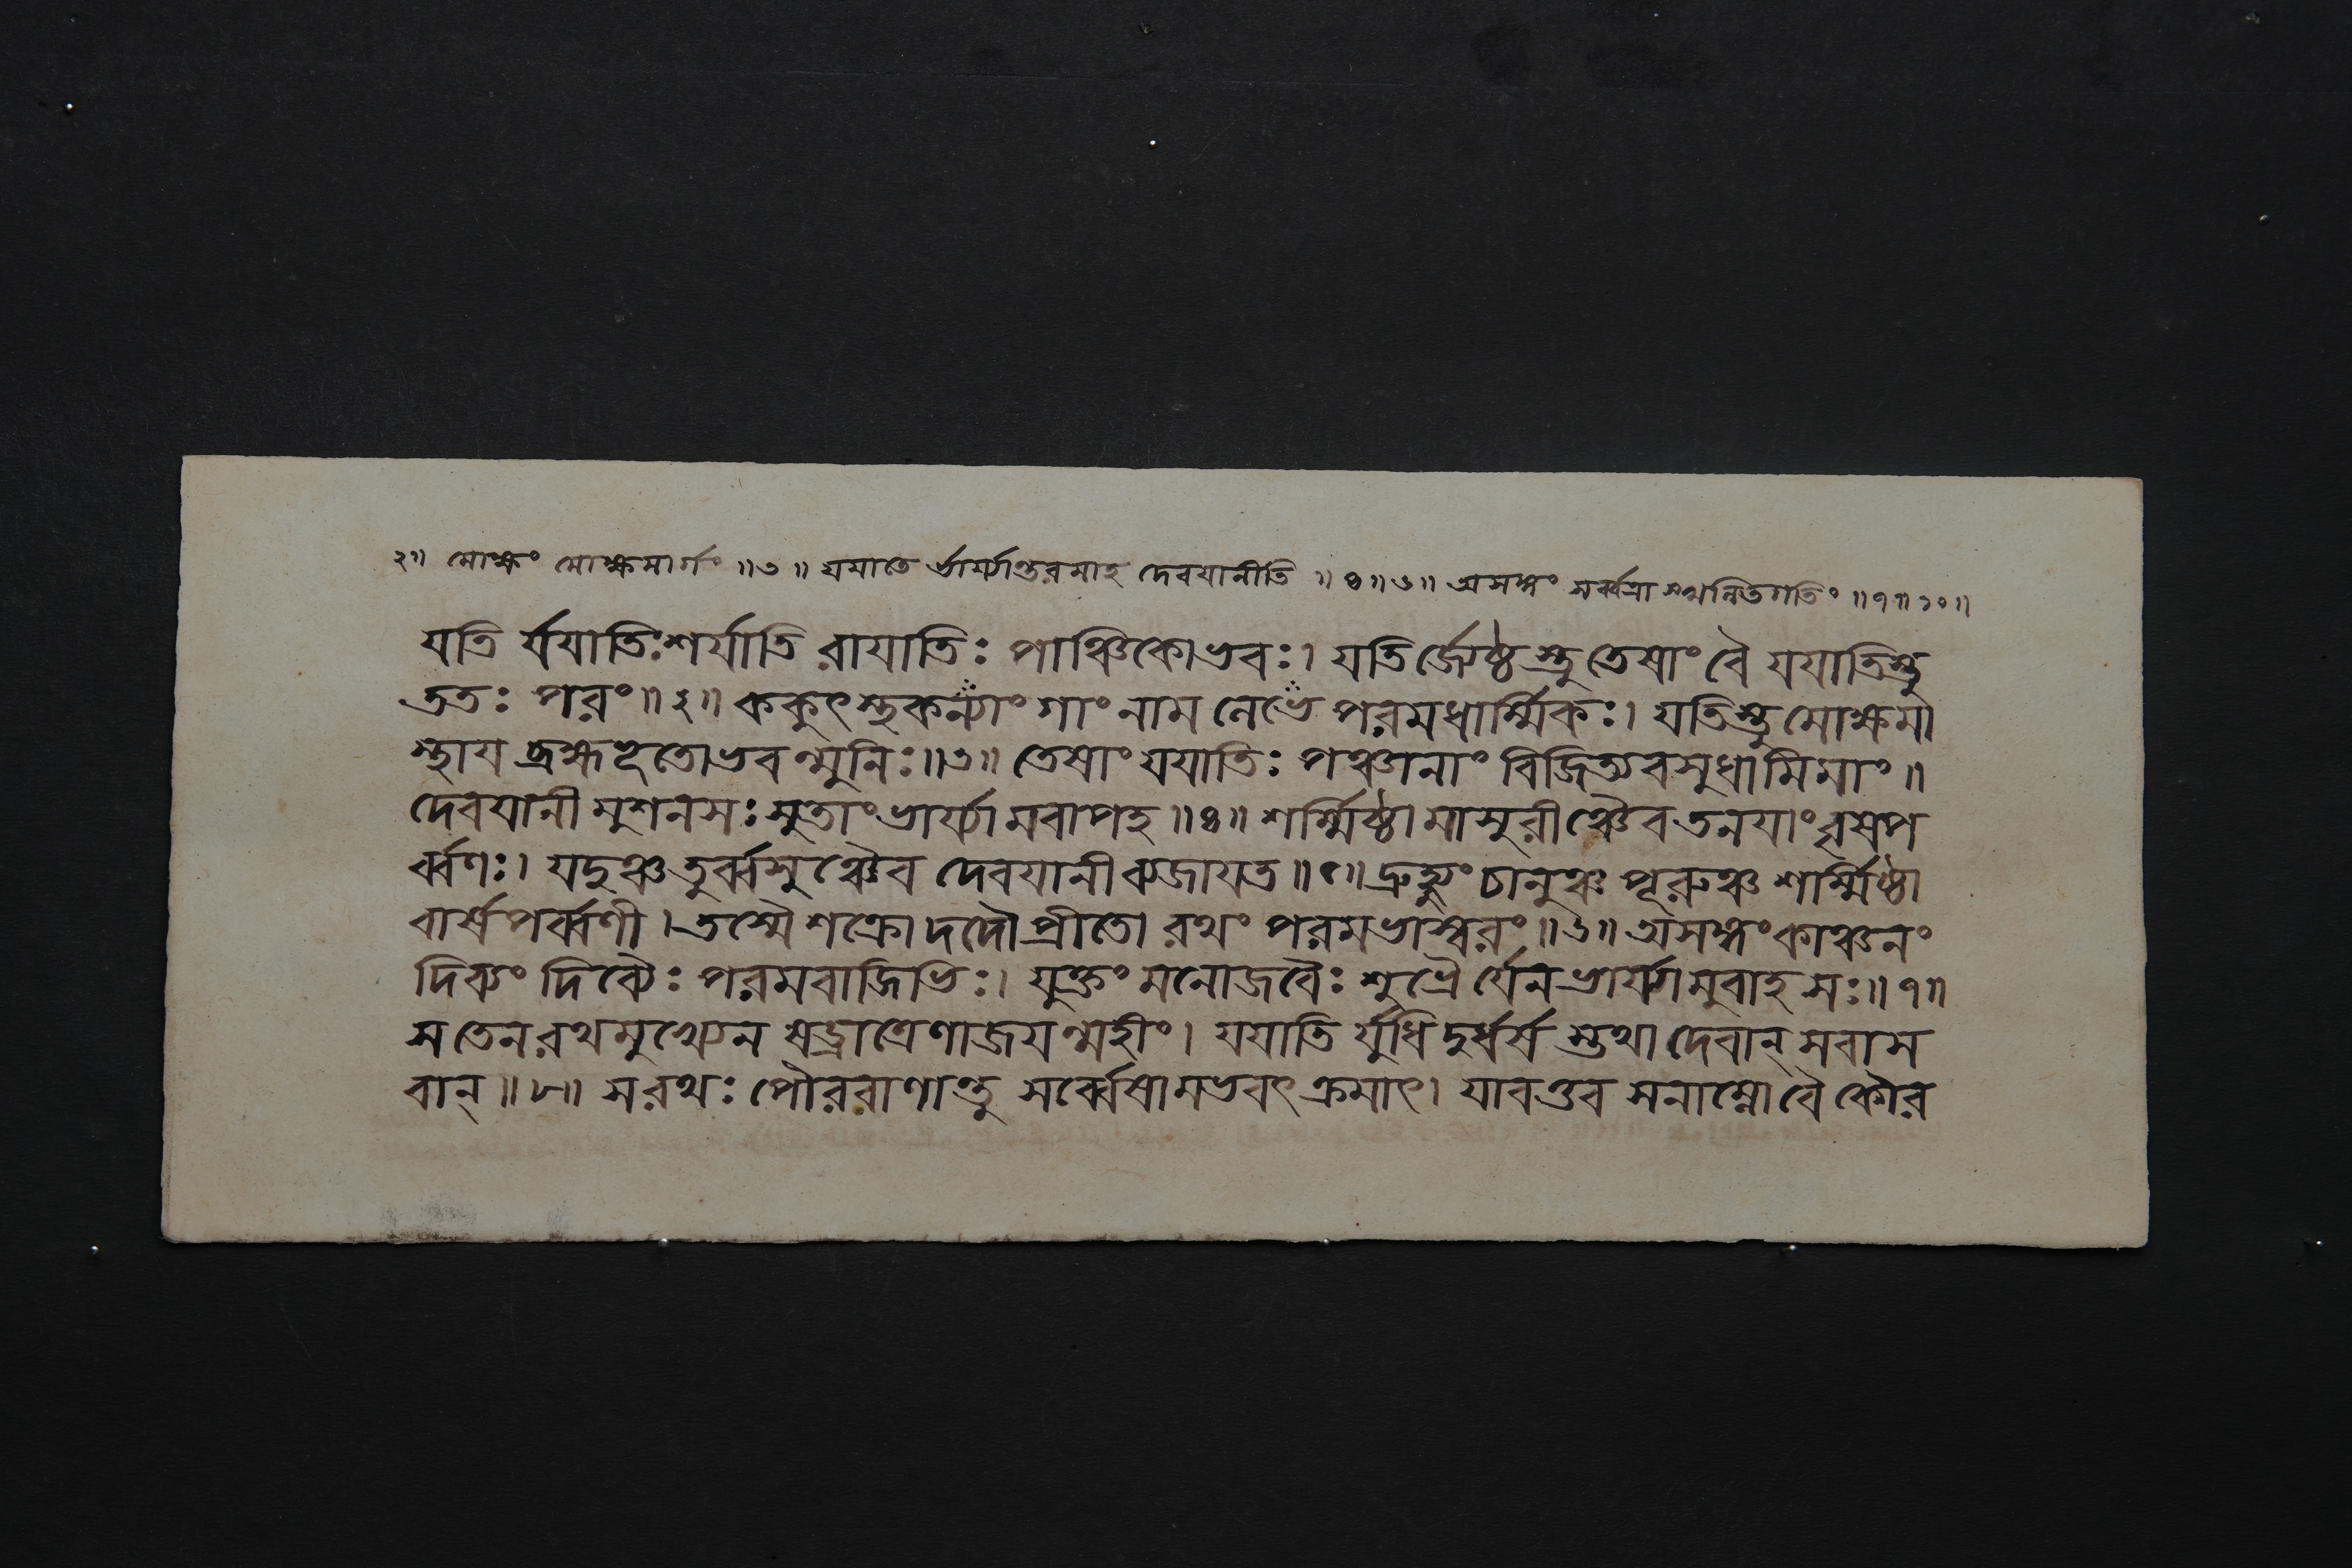 ২॥ মোক্ষং মোক্ষমার্গং ॥৩॥ যযাতে র্ভার্য্যান্তরমাহ দেবযানীতি ॥৪॥৬॥ অসঙ্গং সর্ব্বত্রা গতিং ॥৭॥১০॥
যতি র্যযাতিঃ শর্যাতি রাযাতিঃ পাঞ্চিকোভবঃ। যতি র্জ্যেষ্ঠস্তু তেষাং বৈ যযাতিস্তু
ততঃ পরং॥২॥ ককুৎস্থকন্যাং গাং নাম নেভে পরমধার্ম্মিকঃ। যতিস্তু মোক্ষমা
স্থায ব্রহ্মভূতোভবন্মুনিঃ॥৩॥ তেষাং যযাতিঃ পঞ্চানাং বিজিত্য বসুধামিমাং॥
দেবযানী মুশনসঃ সুতাং ভার্য্যামবাপহ॥৪॥ শর্ম্মিষ্ঠামাসুরীঞ্চৈব তনযাং বৃষপ
র্ব্বণঃ। যদুঞ্চ তুর্ব্বসুঞ্চৈব দেবযানী ব্যজাযত॥৫॥ দ্রুহ্যুং চানুঞ্চ পূরুঞ্চ শার্ম্মিষ্ঠা
বার্ষপর্ব্বণী। তস্মৈ শক্রো দদৌ প্রীতো রথং পরমভাস্বরং॥৬॥ অসঙ্গং কাঞ্চনং
দিব্যং দিব্যৈঃ পরমবাজিভিঃ। যুক্তং মনোজবৈঃ শুভ্রৈ র্যেন ভার্য্যামুবাহ সঃ॥৭॥
স তেন রথমুখ্যেন ষড্রাত্রেণাজযন্মহীং। যযাতি র্যুধি দুর্ধর্ষ স্তথা দেবান্ সবাস
বান্॥৮॥ স রথঃ পৌরবাণান্তু সর্ব্বেষামভবৎ ক্রমাৎ। যাবত্তব সনাম্নো বৈ কৌর